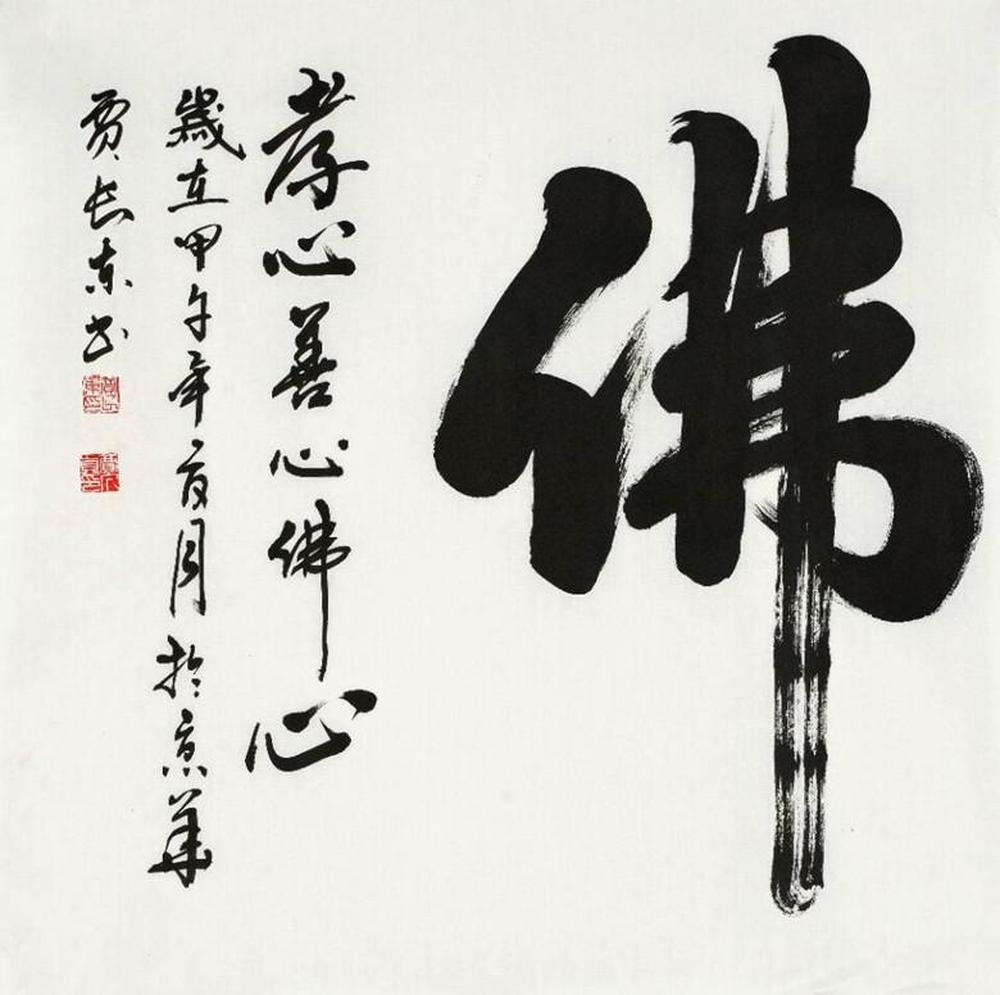 佛
孝心善心佛心
歲在甲午年夏月於京華
贾长东书